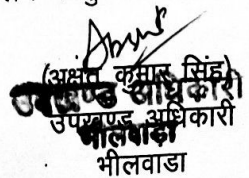 (अक्षत कुमार सिंह)
उपखण्ड अधिकारी
उपखण्ड अधिकारी
भीलवाड़ा
भीलवाडा